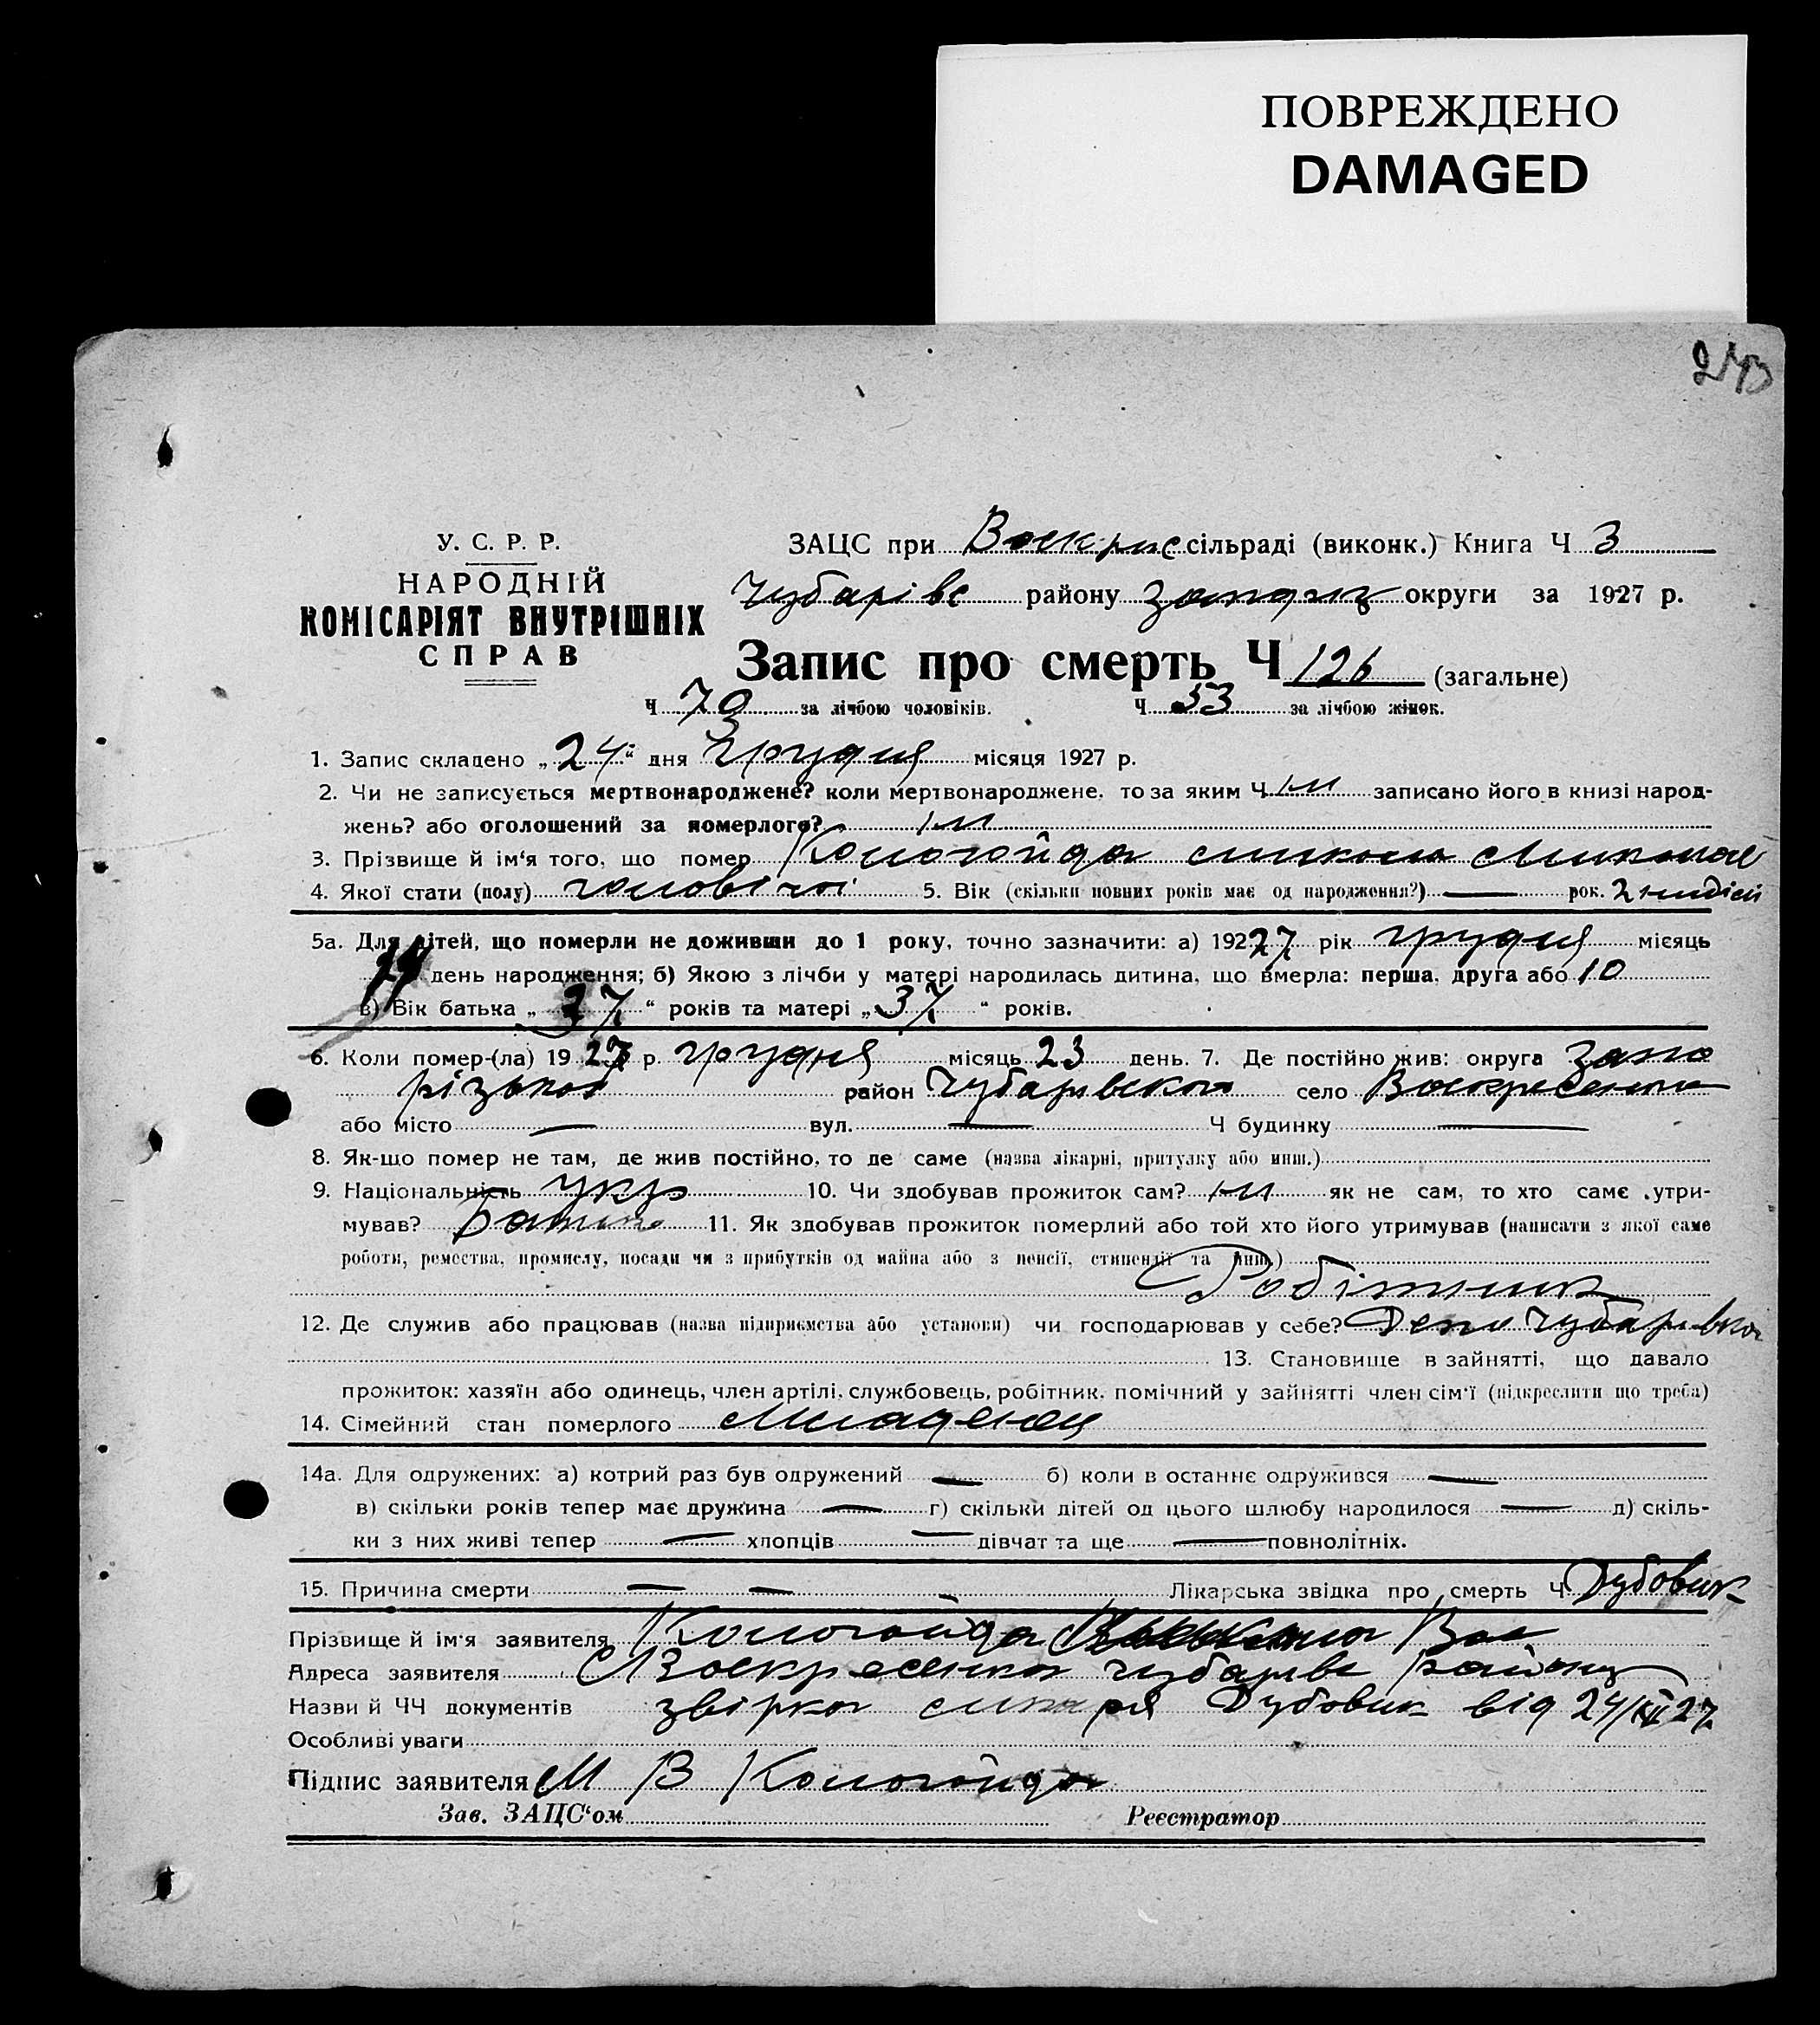 ПОВРЕЖДЕНО
DAMAGED
243
У. С. Р. Р.
НАРОДНІЙ
КОМІСАРІЯТ ВНУТРІШНІХ
СПРАВ
ЗАЦС при Воскрис сільраді (виконк.) Книга Ч 3
Чубарівс району запориз округи за 1927 р.
Запис про смерть Ч 126 (загальне)
Ч 73 за лічбою чоловіків. Ч 53 за лічбою жінок.
1. Запис складено „24“ дня грудня місяця 1927 р.
2. Чи не записується мертвонароджене? коли мертвонароджене, то за яким Ч ні записано його в книзі народ-
жень? або оголошений за померлого? ні
3. Прізвище й ім‘я того, що помер Кологойда
4. Якої статі (полу) чоловічої 5. Вік (скільки повних років має од народження?) — рок. 2 ниділи
5а. Для дітей, що померли не доживши до 1 року, точно зазначити: а) 19227 рік грудня місяць
день народження; б) Якою з лічби у матері народилась дитина, що вмерла: перша, друга або 10
в) Вік батька „37“ років та матері „37“ років.
6. Коли помер-(ла) 1927 р. грудня місяць 23 день. 7. Де постійно жив: округа Запо
різької район Чубарівской село Воскресенка
або місто — вул. — Ч будинку —
8. Як-що помер не там, де жив постійно, то де саме (назва лікарні, притулку або инш.)
9. Національність укр 10. Чи здобував прожиток сам? ні як не сам, то хто саме утри-
мував? Батько 11. Як здобував прожиток померлий або той хто його утримував (написати з якої саме
роботи, ремества, промислу, посади чи з прибутків од майна або з пенсії, стипендії та инш.)
Робітник
12. Де служив або працював (назва підприємства або установи) чи господарював у себе? Депо Чубарівка
13. Становище в зайнятті, що давало
прожиток: хазяїн або одинець, член артілі, службовець, робітник, помічний у зайнятті член сім‘ї (підкреслити що треба)
14. Сімейний стан померлого Младенец
14а. Для одружених: а) котрий раз був одружений — б) коли в останнє одружився —
в) скільки років тепер має дружина — г) скільки дітей од цього шлюбу народилося — д) скіль-
ки з них живі тепер — хлопців — дівчат та ще — повнолітніх.
15. Причина смерти — — Лікарська звідка про смерть Ч Дубовик
Прізвище й ім‘я заявителя Кологойда Вас
Адреса заявителя С Воскресенка Чубарівс району
Назви й ЧЧ документів звірка Дубовик від 24/XII 27
Особливі уваги
Підпис заявителя М В Кологойда
Зав. ЗАЦС‘ом Реєстратор